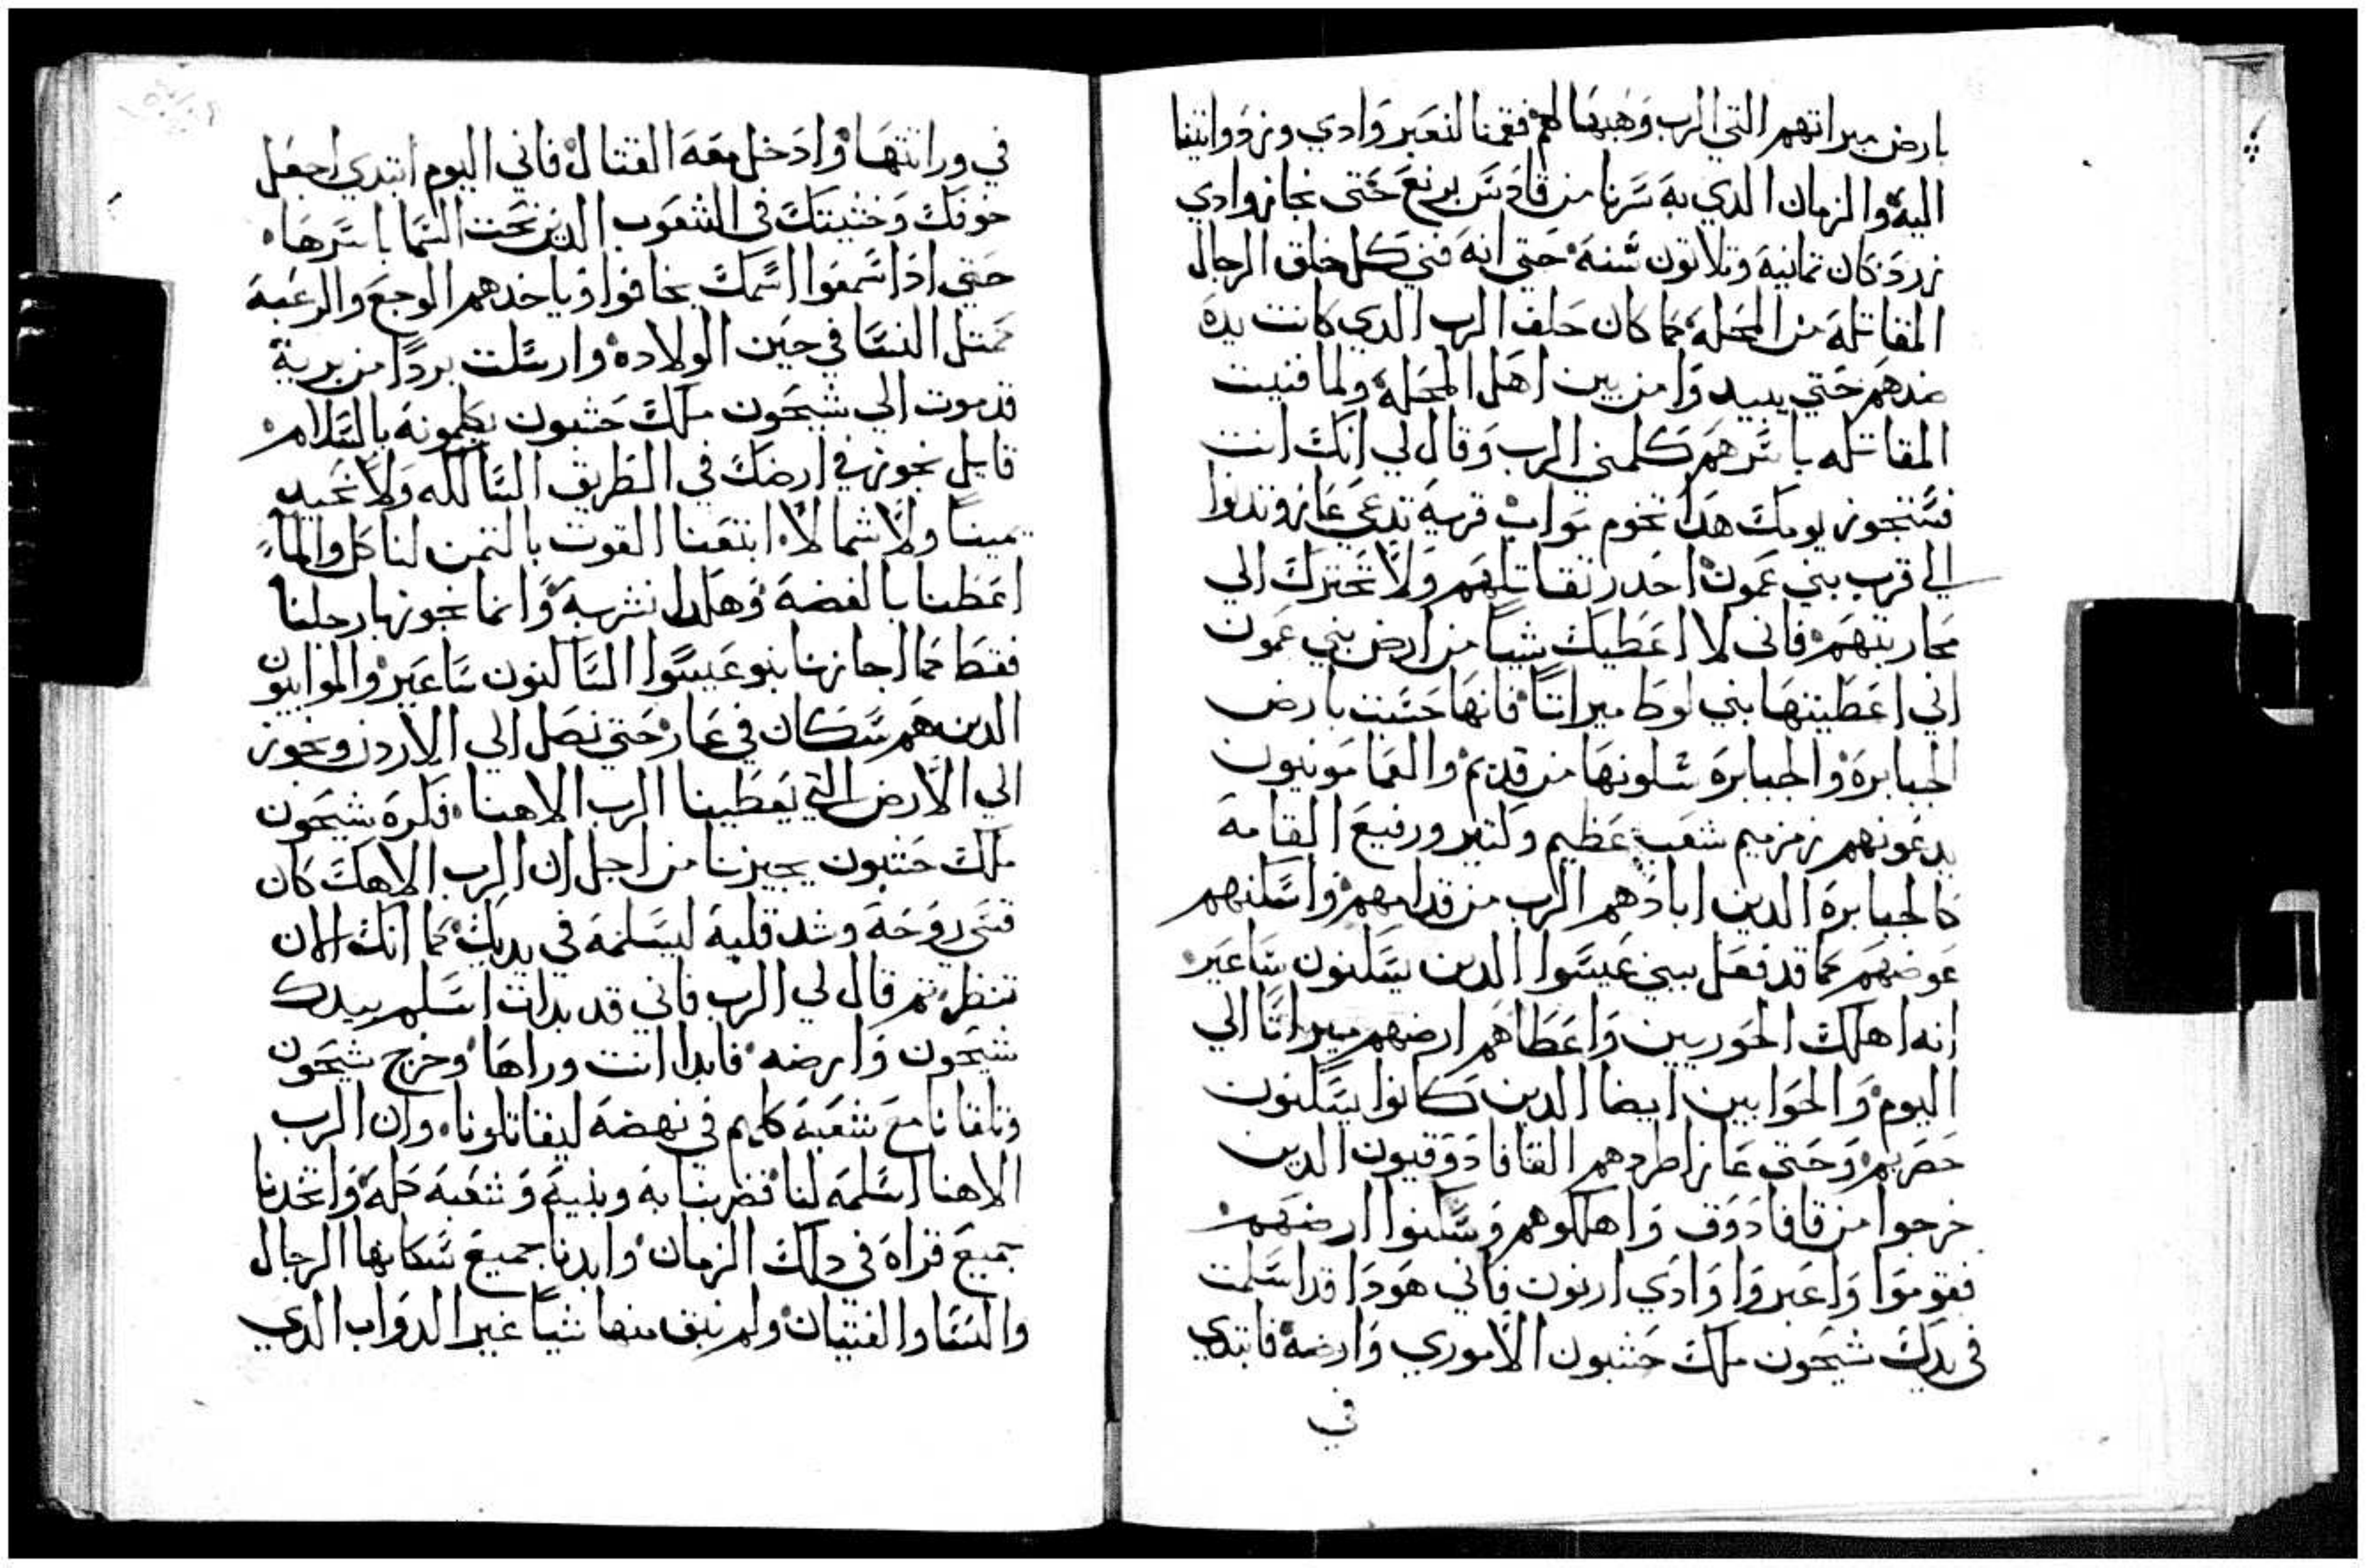 بارض ميراتهم التي الرب وهبها لهم فقمنا لنعبر وادي وزرد واتينا
اليه والزمان الدي به سرنا من قادس برنع حتى نجاز وادي
زرد كان تمانية وتلاتون سنة حتي انه فني كل خلق الرجال
المقاتلة من المحلة كما كان حلف الرب الدي كانت يده
ضدهم حتي يبيدوا من بين اهل المحلة ولما فنيت
المقاتله باسرهم كلمني الرب وقال لي انك انت
فستجوز يومك هدا تخوم مواب قرية تدعي عاز وتدنوا
الي قرب بني عمون احدر تقاتلهم ولا تحترك الي
محاربتهم فاني لا اعطيك شيا من ارض بني عمون
اني اعطيتها بني لوط ميراتا فانها حسبت بارض
الجبابرة والجبابرة سكنوها من قديم والعمامونيون
يدعونهم زمزميم شعب عظيم وكتير ورفيع القامة
كالجبابرة الدين ابادهم الرب من قدامهم واسكنهم
عوضهم كما قد فعل ببني عيسوا الدين يسكنون ساعير
انه اهلك الحوريين واعطاهم ارضهم ميراتا الي
اليوم والحوايين ايضا الدين كانوا يسكنون
حضريم وحتي عاز اطردهم القافادوقيون الدين
خرجوا من قافادوق واهلكوهم وسكنوا ارضهم
فقوموا واعبروا وادي ارنون فاني هودا قد اسلمت
في يدك شيحون ملك حشبون الاموري وارضه فابتدي
في
في وراتتها وادخل معه القتال فاني اليوم ابتدي اجعل
خوفك وخشيتك في الشعوب الدين تحت السما باسرها
حتي ادا سمعوا اسمك يخافوا وياخدهم الوجع والرعبة
كمتل النسا في حين الولاده وارسلت بردا من برية
قدموت الي شيحون ملك حشبون يكلمونه بالسلام
قايل نجوز في ارضك في الطريق السالكه ولا نحيد
يمينا ولا شمالا ابتعنا القوت بالتمن لناكل والماء
اعطنا بالفضة وهكدا نشربه وانما نجوزها برجلينا
فقط كما اجازنا بنو عيسوا الساكنون ساعير والموابيون
الدين هم سكان في عار حتي نصل الي الاردن ونجوز
الي الارض التي يعطينا الرب الاهنا فكره شيحون
ملك حشبون يجيزنا من اجل ان الرب الاهك كان
قسي روحه وشد قلبه ليسلمه في يديك كما انك الان
تنظر تم قال لي الرب فاني قد بدات اسلم بيدك
شيحون وارضه فابدا انت وراها وخرج شيحون
وتلقانا مع شعبه كلهم في نهضة ليقاتلونا وان الرب
الاهنا اسلمه لنا فضربنا به وبنيه وشعبه كله واتخدنا
جميع قراه في دلك الزمان وابدنا جميع سكانها الرجال
والنسا والفتيان ولم نبق منها شيا غير الدواب الدي